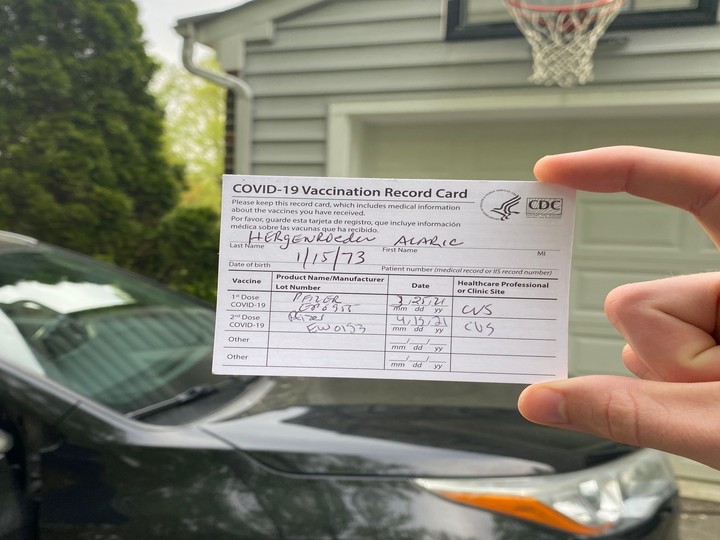 COVID-19 Vaccination Record Card
CDC
Please keep this record card, which includes medical information
about the vaccines you have received.
Por favor, guarde esta tarjeta de registro, que incluye información
médica sobre las vacunas que ha recibido.
HERGENROEDER ALARIC
Last Name First Name MI
1/15/73
Date of birth Patient number (medical record or IIS record number)
Vaccine Product Name/Manufacturer Date Healthcare Professional
Lot Number or Clinic Site
1st Dose PFIZER 3,25,21 CVS
COVID-19 mm dd yy
2nd Dose Pfizer 4,15,21 CVS
COVID-19 EW0153 mm dd yy
Other
mm dd yy
Other
mm dd yy